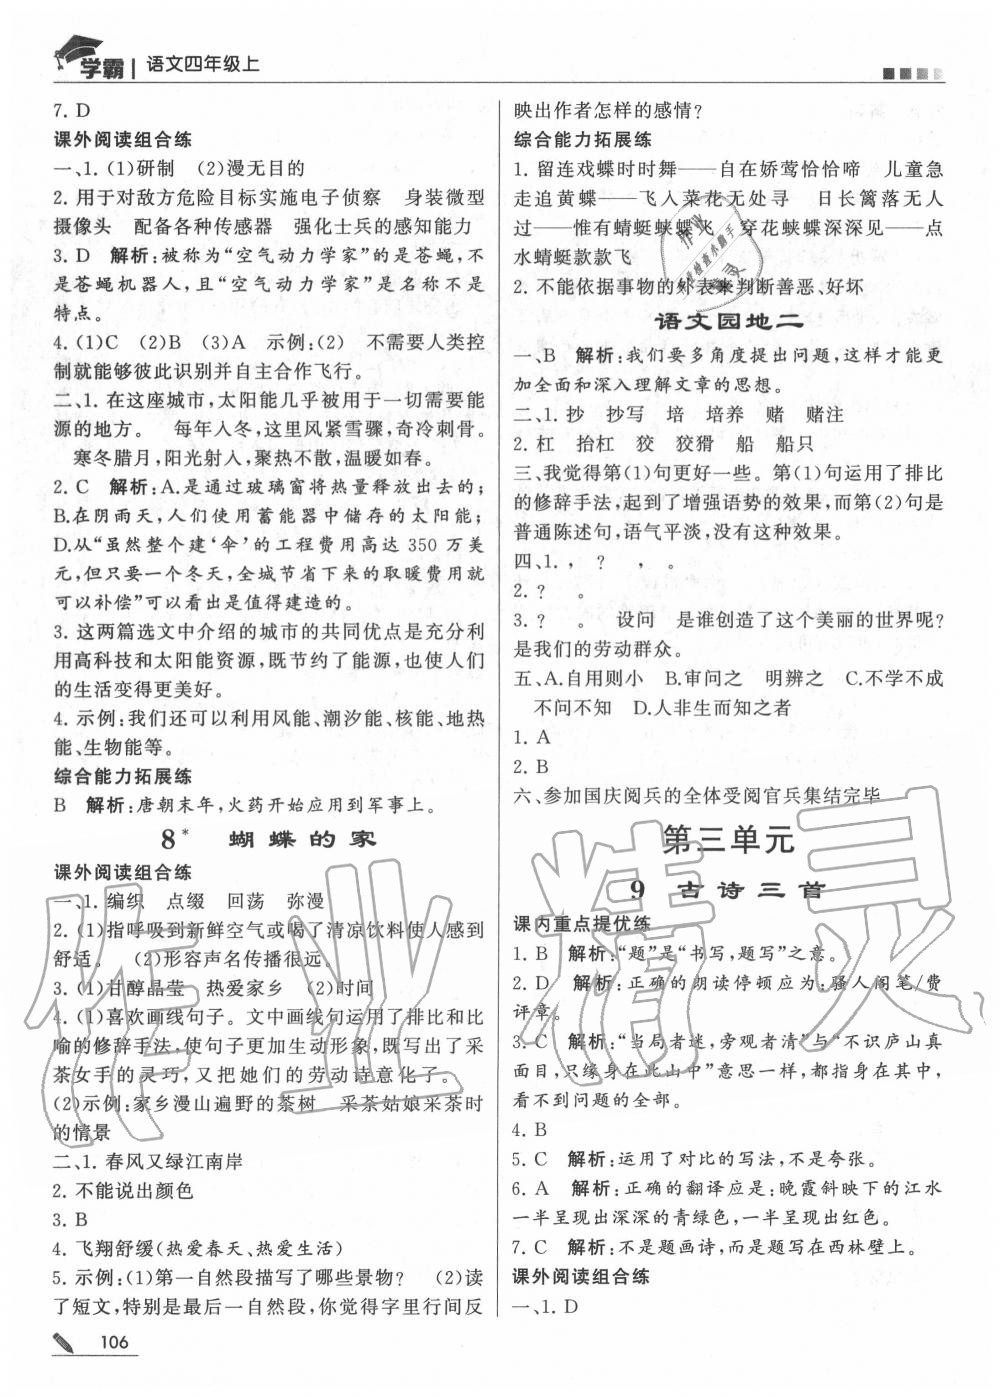 学霸 语文四年级上
7. D
课外阅读组合练
一、1. (1)研制 (2)漫无目的
2. 用于对敌方危险目标实施电子侦察 身装微型
摄像头 配备各种传感器 强化士兵的感知能力
3. D 解析:被称为“空气动力学家”的是苍蝇,不
是苍蝇机器人,且“空气动力学家”是名称不是
特点。
4. (1)C (2)B (3)A 示例:(2) 不需要人类控
制就能够彼此识别并自主合作飞行。
二、1. 在这座城市,太阳能几乎被用于一切需要能
源的地方。 每年入冬,这里风紧雪骤,奇冷刺骨。
寒冬腊月,阳光射入,聚热不散,温暖如春。
2. C 解析:A.是通过玻璃窗将热量释放出去的;
B.在阴雨天,人们使用蓄能器中储存的太阳能;
D.从“虽然整个建‘伞’的工程费用高达 350 万美
元,但经过一个冬天,全城节省下来的取暖费用就
可以补偿”可以看出是值得建造的。
3. 这两篇选文中介绍的城市的共同优点是充分利
用高科技和太阳能资源,既节约了能源,也使人们
的生活变得更美好。
4. 示例:我们还可以利用风能、潮汐能、核能、地热
能、生物能等。
综合能力拓展练
B 解析:唐朝末年,火药开始应用到军事上。
8* 蝴蝶的家
课外阅读组合练
一、1. 编织 点缀 回荡 弥漫
2. (1)指呼吸到新鲜空气或喝了清凉饮料使人感到
舒适。 (2)形容声名传播很远。
3. (1)甘醇晶莹 热爱家乡 (2)时间
4. (1)喜欢画线句子。文中画线句运用了排比和比
喻的修辞手法,使句子更加生动形象,既写出了采
茶女手的灵巧,又把她们的劳动诗意化了。
(2)示例:家乡漫山遍野的茶树 采茶姑娘采茶时
的情景
二、1. 春风又绿江南岸
2. 不能说出颜色
3. B
4. 飞翔舒缓(热爱春天、热爱生活)
5. 示例:(1)第一自然段描写了哪些景物? (2)读
了短文,特别是最后一自然段,你觉得字里行间反
106
映出作者怎样的感情?
综合能力拓展练
1. 留连戏蝶时时舞——自在娇莺恰恰啼 儿童急
走追黄蝶——飞入菜花无处寻 日长篱落无人
过——惟有蜻蜓蛱蝶飞 穿花蛱蝶深深见——点
水蜻蜓款款飞
2. 不能依据事物的外表来判断善恶、好坏
语文园地二
一、B 解析:我们要多角度提出问题,这样才能更
加全面和深入理解文章的思想。
二、1. 抄 抄写 培 培养 赌 赌注
2. 杠 抬杠 狡 狡猾 船 船只
三、我觉得第(1)句更好一些。第(1)句运用了排比
的修辞手法,起到了增强语势的效果,而第(2)句是
普通陈述句,语气平淡,没有这种效果。
四、1. , ? , 。
2. ? 。
3. ? 。 设问 是谁创造了这个美丽的世界呢?
是我们的劳动群众。
五、A.自用则小 B.审问之 明辨之 C.不学不成
不问不知 D.人非生而知之者
1. A
2. B
六、参加国庆阅兵的全体受阅官兵集结完毕
第三单元
9 古诗三首
课内重点提优练
1. B 解析:“题”是“书写,题写”之意。
2. D 解析:正确的朗读停顿应为:骚人阁笔/费
评章。
3. C 解析:“当局者迷,旁观者清”与“不识庐山真
面目,只缘身在此山中”意思一样,都指身在其中,
看不到问题的全部。
4. B
5. C 解析:运用了对比的写法,不是夸张。
6. A 解析:正确的翻译应是:晚霞斜映下的江水
一半呈现出深深的青绿色,一半呈现出红色。
7. C 解析:不是题画诗,而是题写在西林壁上。
课外阅读组合练
一、1. D
作业精灵